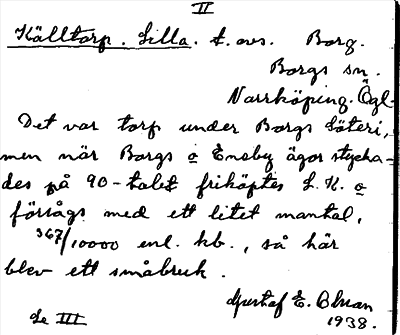 II
Källtorp. Lilla. t. avs. Borg.
Borgs sn.
Norrköping. Ögl.
Det var torp under Borgs Säteri,
men när Borgs o Eneby ägor stycka-
des på 90-talet friköptes L. K. o
försågs med ett litet mantal,
367/10000 enl. kb., så här
blev ett småbruk.
Gustaf E. Olman
1938.
Se III